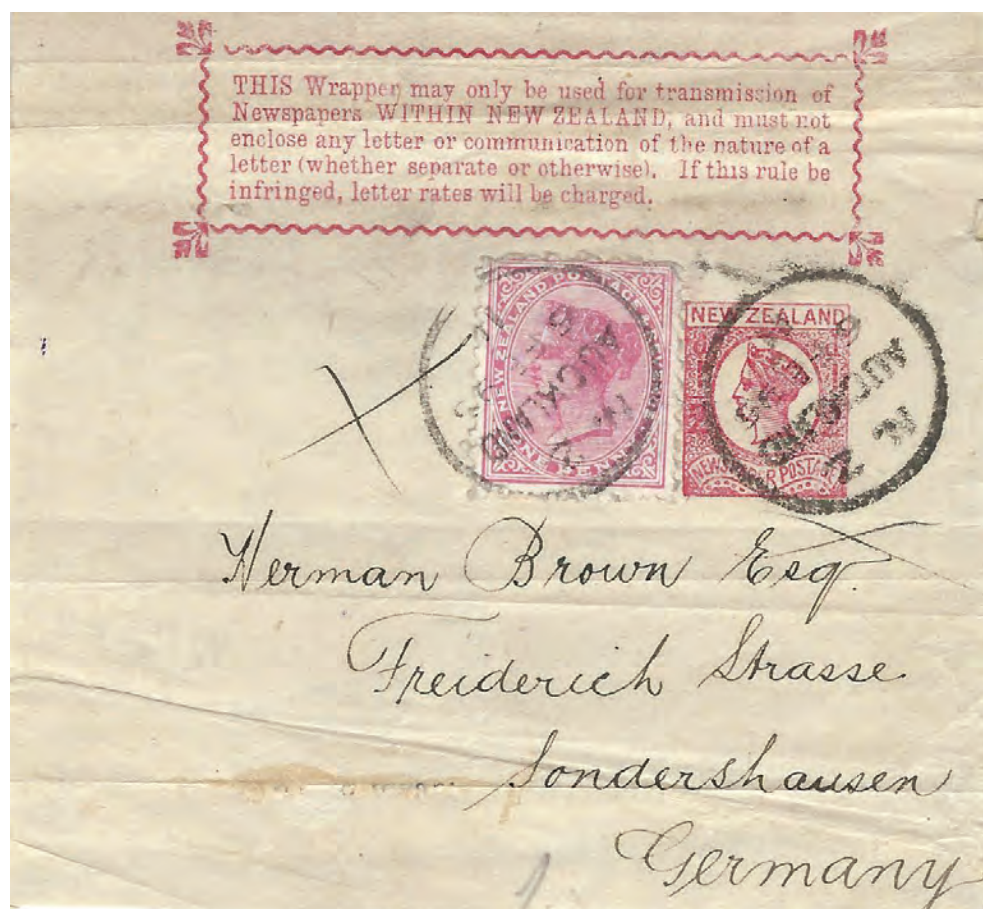 THIS Wrapper may only be used for transmission of
Newspapers WITHIN NEW ZEALAND, and must not
enclose any letter or communication of the nature of a
letter (whether separate or otherwise). If this rule be
infringed, letter rates will be charged.
NEW ZEALAND POSTAGE
ONE PENNY
AUCKLAND
N. Z
NEW ZEALAND
NEWSPAPER POSTAGE
AUCKLAND
N. Z
Herman Brown Esq.
Freiderich Strasse
Sondershausen
Germany